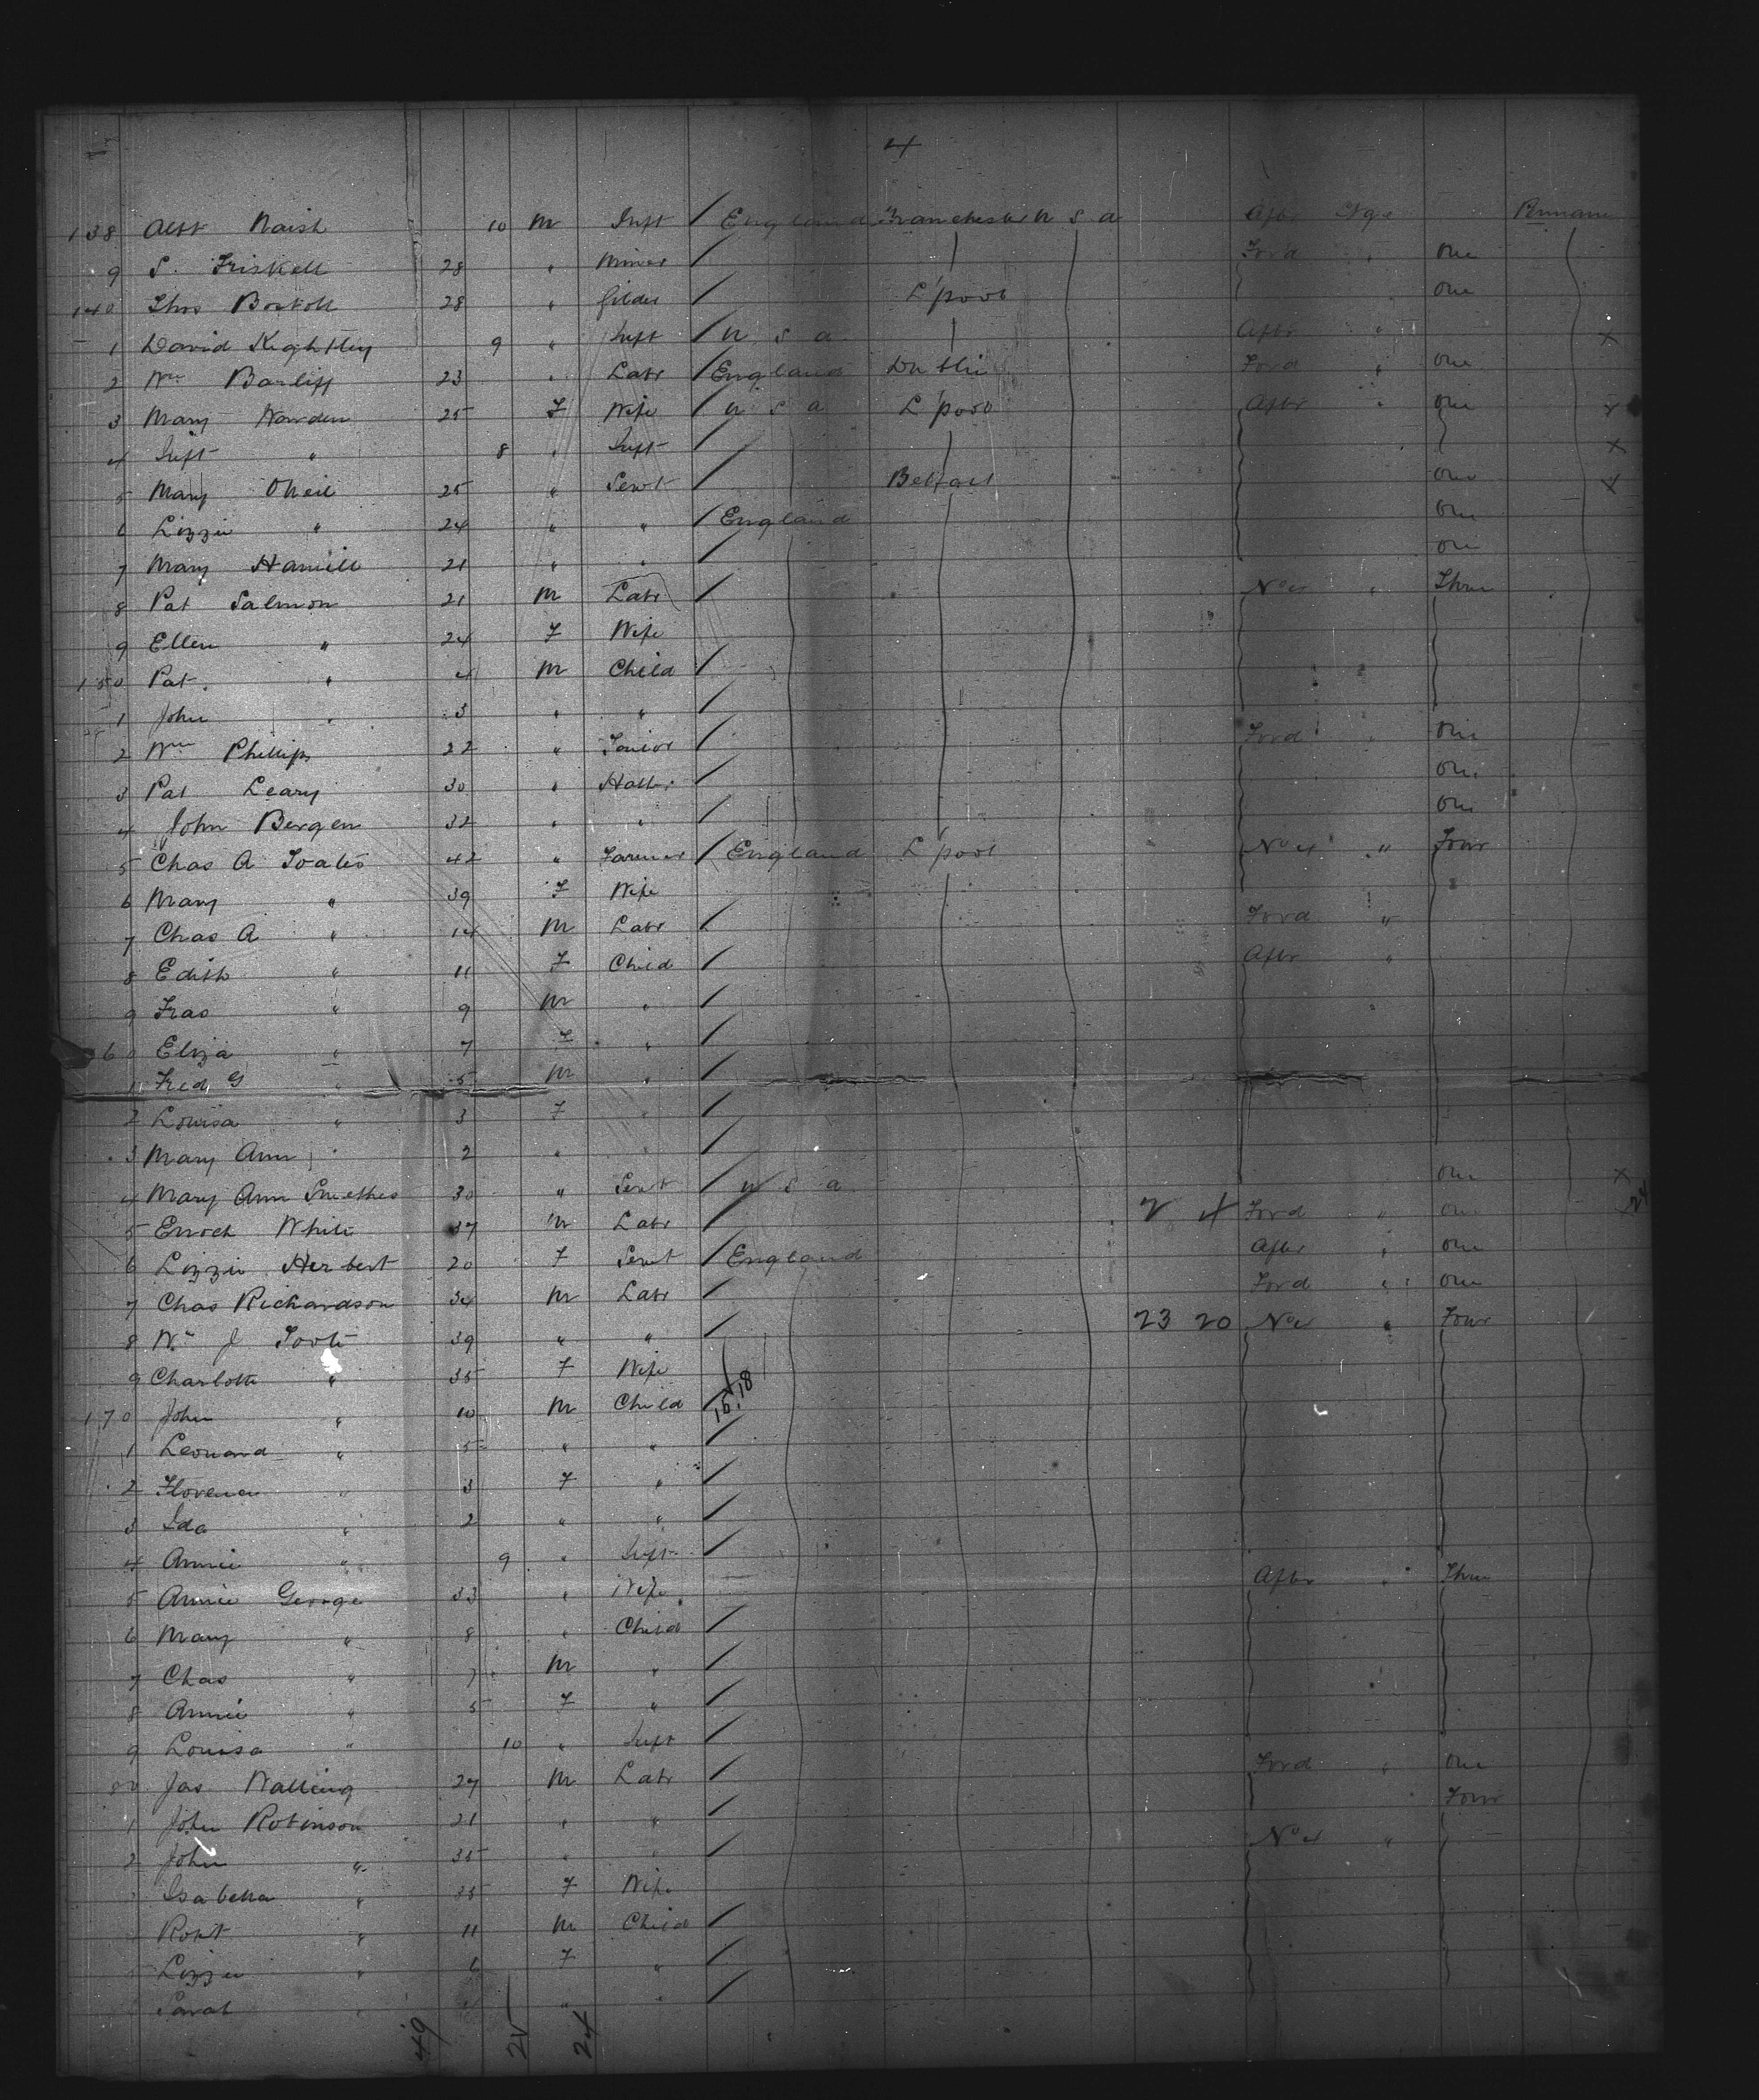 4
138 Albt Naish 10 M Inft / England Manchester U S A Aftr Stge Perman
9 S. Friskell 28 " Miner / Ford " One
140 Thos Bostoll 28 " Gilder / L'pool One
1 David Keightley 9 " Inft / U S A Aftr " x
2 Wm Barliff 23 " Labr / England Dublin Ford " One
3 Mary Warden 25 F Wife / U S A L'pool Aftr " One x
4 Inft " 8 " Inft / x
5 Mary ONeil 25 " Servt / Belfast One x
6 Lizzie " 24 " " / England One
7 Mary Hamill 21 " " / One
8 Pat Salmon 21 M Labr / Three
9 Ellen " 24 F Wife
150 Pat " 4 M Child /
1 John " 3 " " /
2 Wm Phillips 22 " / Ford One
3 Pat Leary 30 " Hatter / One
4 John Bergen 32 " " / One
5 Chas A Toates 42 " Farmer / England L'pool " Four
6 Mary " 39 F Wife
7 Chas A " 14 M Labr / Ford "
8 Edith " 11 F Child / Aftr "
9 Fras " 9 M " /
60 Eliza " 7 F " /
1 Fred G " 5 M " /
2 Louisa " 3 F " /
3 Mary Ann " 2 " " /
4 Mary Ann Smethes 30 " Servt / U S A One x
5 Enoch White 37 M Labr / 2 4 Ford " One 24
6 Lizzie Herbert 20 F Servt / England Aftr " One
7 Chas Richardson 34 M Labr / Ford " One
8 Wm J Toote 39 " " / 23 20 " Four
9 Charlotte " 35 F Wife
170 John " 10 M Child / 15.18
1 Leonard " 5 " " /
2 Florence " 3 F " /
3 Ida " 2 " " /
4 Annie " 9 " Inft /
5 Annie George 33 " Wife Aftr " Three
6 Mary " 8 " Child /
7 Chas " 7 M " /
8 Annie " 5 F " /
9 Louisa " 10 " Inft /
80 Jas Walling 27 M Labr / Ford " One
1 John Robinson 21 " " / Four
2 John " 35 " " / "
Isabella " 35 F Wife
Robt " 11 M Child /
Lizzie " 6 F " /
Sarah " " " /
49 25 24